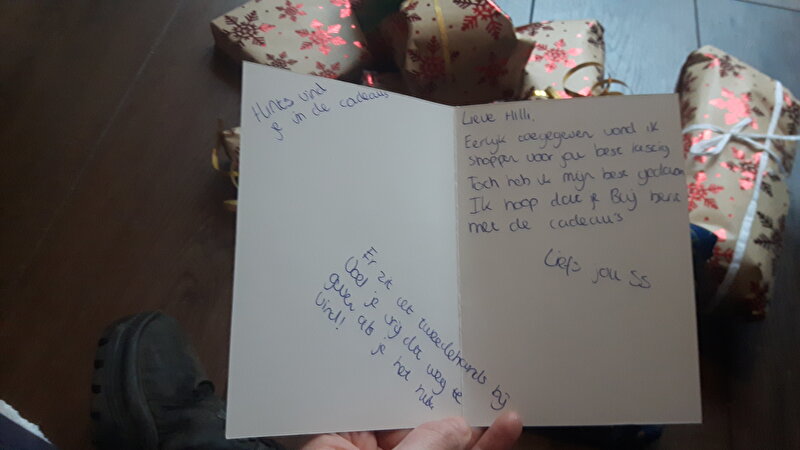 Hints vind
je in de cadeaus
Er zit iets tweedehands bij
Voel je vrij dat weg te
geven als je het niks
vind!
Lieve Hilli,
Eerlijk toegegeven vond ik
shoppen voor jou best lastig
Toch heb ik mijn best gedaan
Ik hoop dat je Blij bent
met de cadeau's
Liefs jou SS